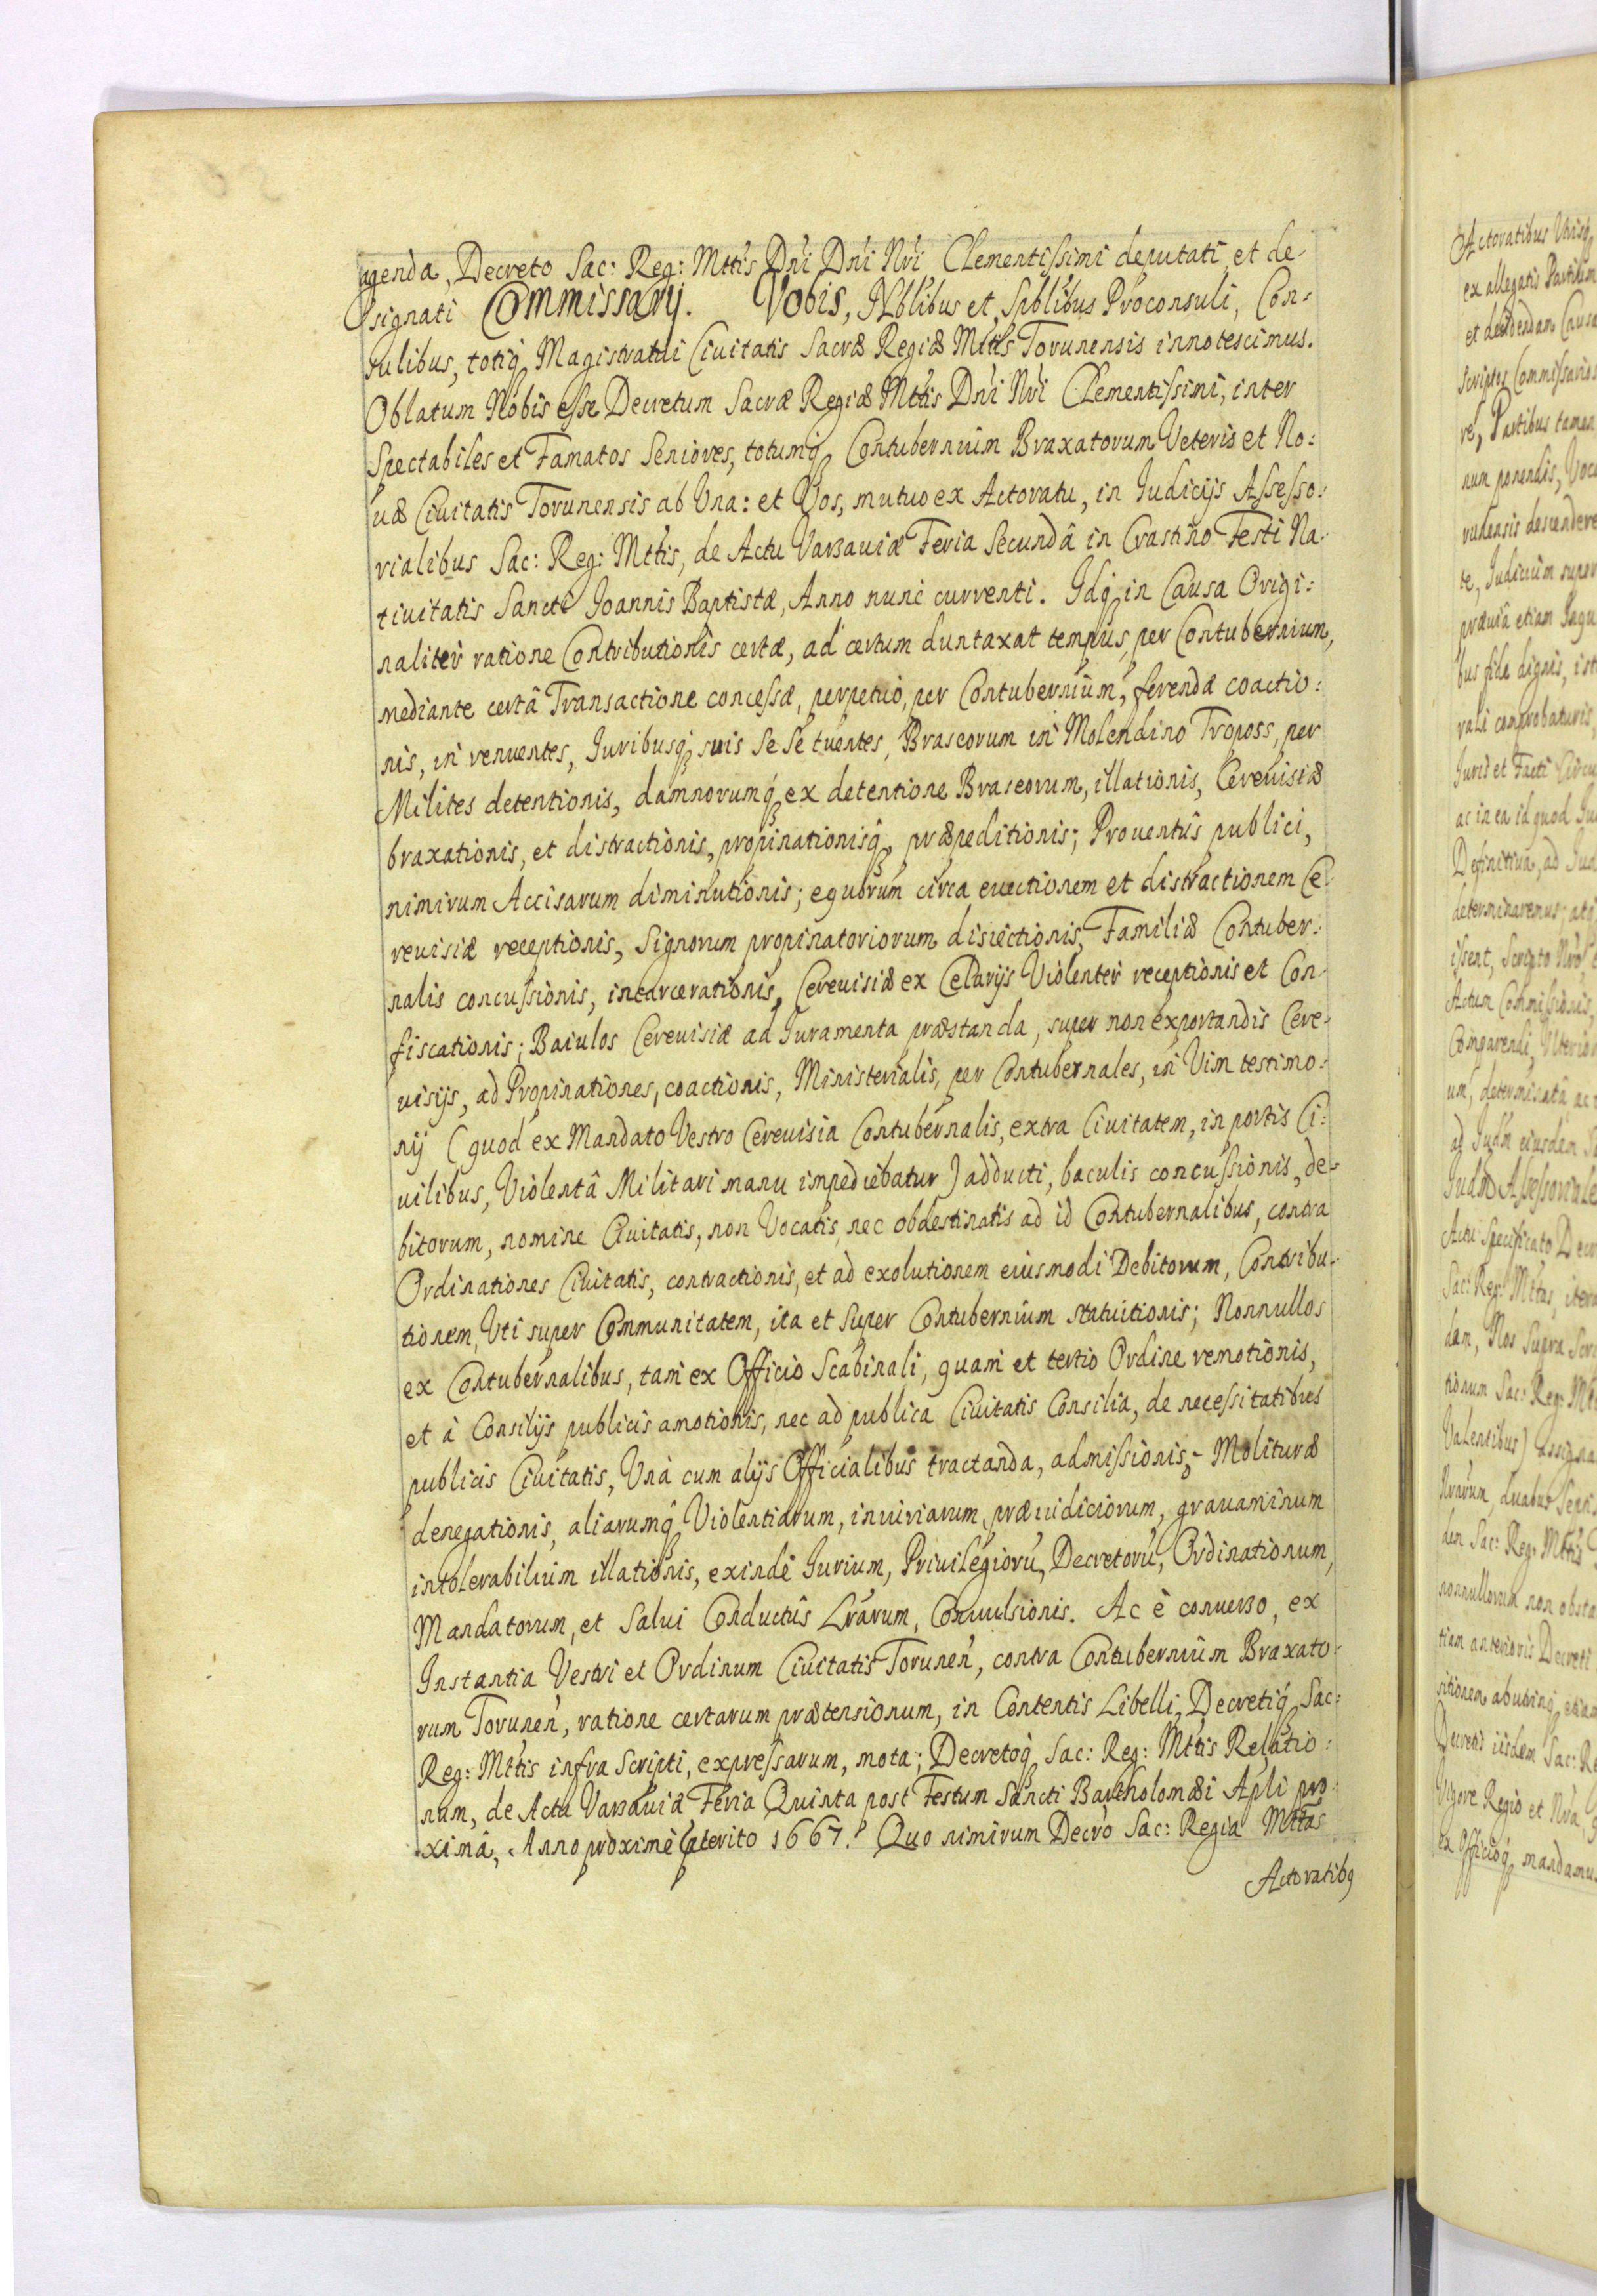 agenda, Decreto Sac: Reg: Mttis Dni Dni Nri Clementissimi deputati et de-
signati Commissarij. Vobis, Nblibus et Spblibus Proconsuli, Con-
sulibus, totiq́ Magistratui Ciuitatis Sacræ Regiæ Mttis Torunensis innotescimus.
Oblatum Nobis esse Decretum Sacræ Regiæ Mttis Dni Nri Clementissimi, inter
Spectabiles et Famatos Seniores, totumq́ Contubernium Braxatorum Veteris et No:
uæ Ciuitatis Torunensis ab Vna: et Vos, mutuo ex Actoratu, in Iudicijs Assesso:
rialibus Sac: Reg: Mttis, de Actu Varsauiæ Feria Secundâ in Crastino Festi Na-
tiuitatis Sancti Ioannis Baptistæ, Anno nunc currenti. Idq́ in Causa Origi:
naliter ratione Contributionis certæ, ad certum duntaxat tempus, per Contubernium,
mediante certâ Transactione concessæ, perpetuò, per Contubernium, ferendæ coactio:
nis, in renuentes, Iuribusq́ suis Se Se tuentes, Braseorum in Molendino Troposs, per
Milites detentionis, damnorumq́ ex detentione Braseorum, illationis, Cereuisiæ
braxationis, et distractionis, propinationisq́ præpeditionis; Prouentûs publici,
nimirum Accisarum diminutionis; equorum circa euectionem et distractionem Ce-
reuisiæ receptionis, Signorum propinatoriorum disiectionis, Familiæ Contuber-
nalis concussionis, incarcerationis, Cereuisiæ ex Celarijs Violenter receptionis et Con-
fiscationis; Baiulos Cereuisiæ ad Iuramenta præstanda, super non exportandis Cere-
uisijs, ad Propinationes, coactionis, Ministerialis, per Contubernales, in Vim testimo:
nij (quod ex Mandato Vestro Cereuisia Contubernalis, extra Ciuitatem, in portis Ci:
uilibus, Violentâ Militari manu impediebatur) adducti, baculis concussionis, de-
bitorum, nomine Ciuitatis, non Vocatis, nec obdestinatis ad id Contubernalibus, contra
Ordinationes Ciuitatis, contractionis, et ad exolutionem eiusmodi Debitorum, Contribu-
tionem, Vti super Communitatem, ita et super Contubernium statuitionis; Nonnullos
ex Contubernalibus, tam ex Officio Scabinali, quam et tertio Ordine remotionis,
et à Consilijs publicis amotionis, nec ad publica Ciuitatis Consilia, de necessitatibus
publicis Ciuitatis, Vnà cum alijs Officialibus tractanda, admissionis, Molituræ
denegationis, aliarumq́ Violentiarum, iniuriarum, præiudiciorum, grauaminum
intolerabilium illationis, exinde Iurium, Priuilegiorū, Decretorū, Ordinationum,
Mandatorum, et Salui Conductûs Lrarum, Conuulsionis. Ac è conuerso, ex
Instantia Vestri et Ordinum Ciuitatis Torunen, contra Contubernium Braxato-
rum Torunen, ratione certarum prætensionum, in Contentis Libelli, Decretiq́ Sac:
Reg: Mttis infra Scripti, expressarum, mota; Decretoq́ Sac: Reg: Mttis Relatio:
num, de Actu Varsauiæ Feria Quinta post Festum Sancti Bartholomæi Apli pro:
ximâ, Anno proximè præterito 1667. Quo nimirum Decro Sac: Regia Mttas
Actoratibq